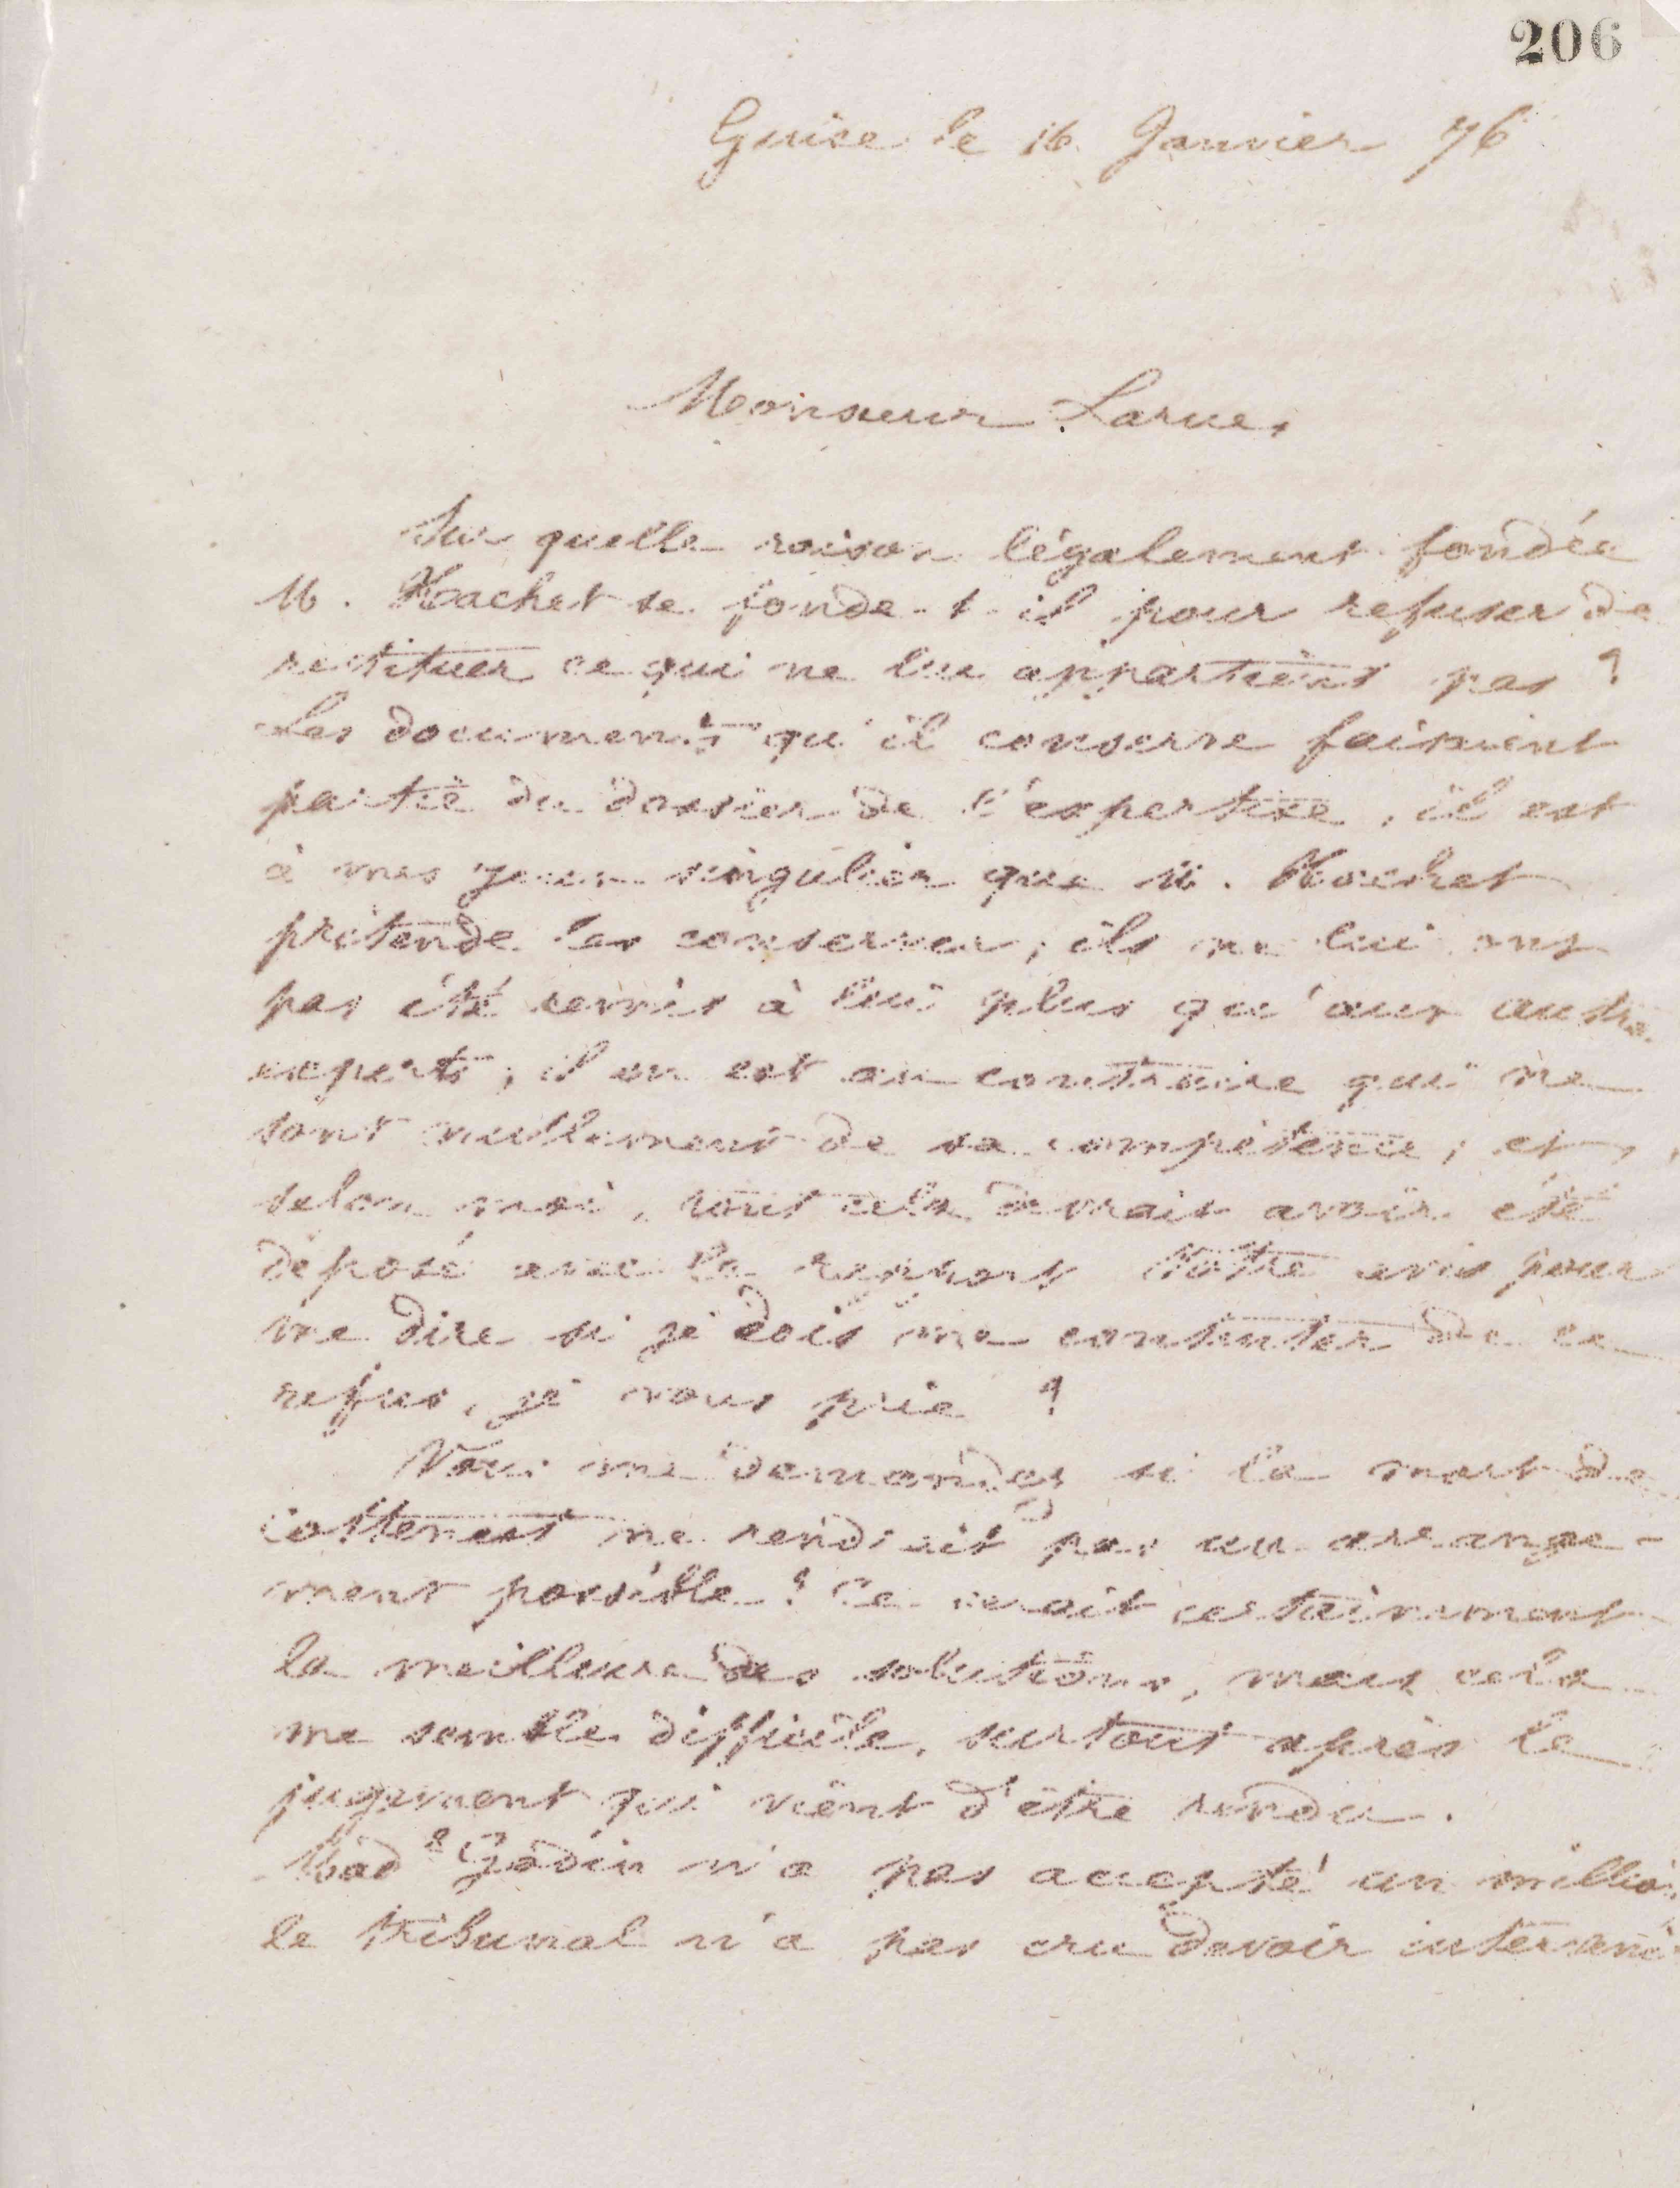 206
Guise le 16 Janvier 76
Monsieur Larue,
Sur quelle raison légalement fondée
M. Hachet se fonde-t-il pour refuser de
restituer ce qui ne lui appartient pas ?
Les documents qu'il conserve faisaient
partie du dossier de l'expertise, il est
à mes yeux singulier que M. Hachet
prétende les conserver, ils ne lui ont
pas été remis à lui plus qu'aux autres
experts, il en est au contraire qui ne
sont nullement de sa compétence, et,
selon moi, tout cela devrait avoir été
déposé avec le rapport. Votre avis pour
me dire si je dois me contenter de ce
refus, je vous prie ?
Vous me demandez si la mort de
Cottenest ne rendrait pas un arrange-
ment possible ? Ce serait certainement
la meilleure des solutions, mais cela
me semble difficile, surtout après le
jugement qui vient d'être rendu.
Made Godin n'a pas accepté un million
le tribunal n'a pas cru devoir